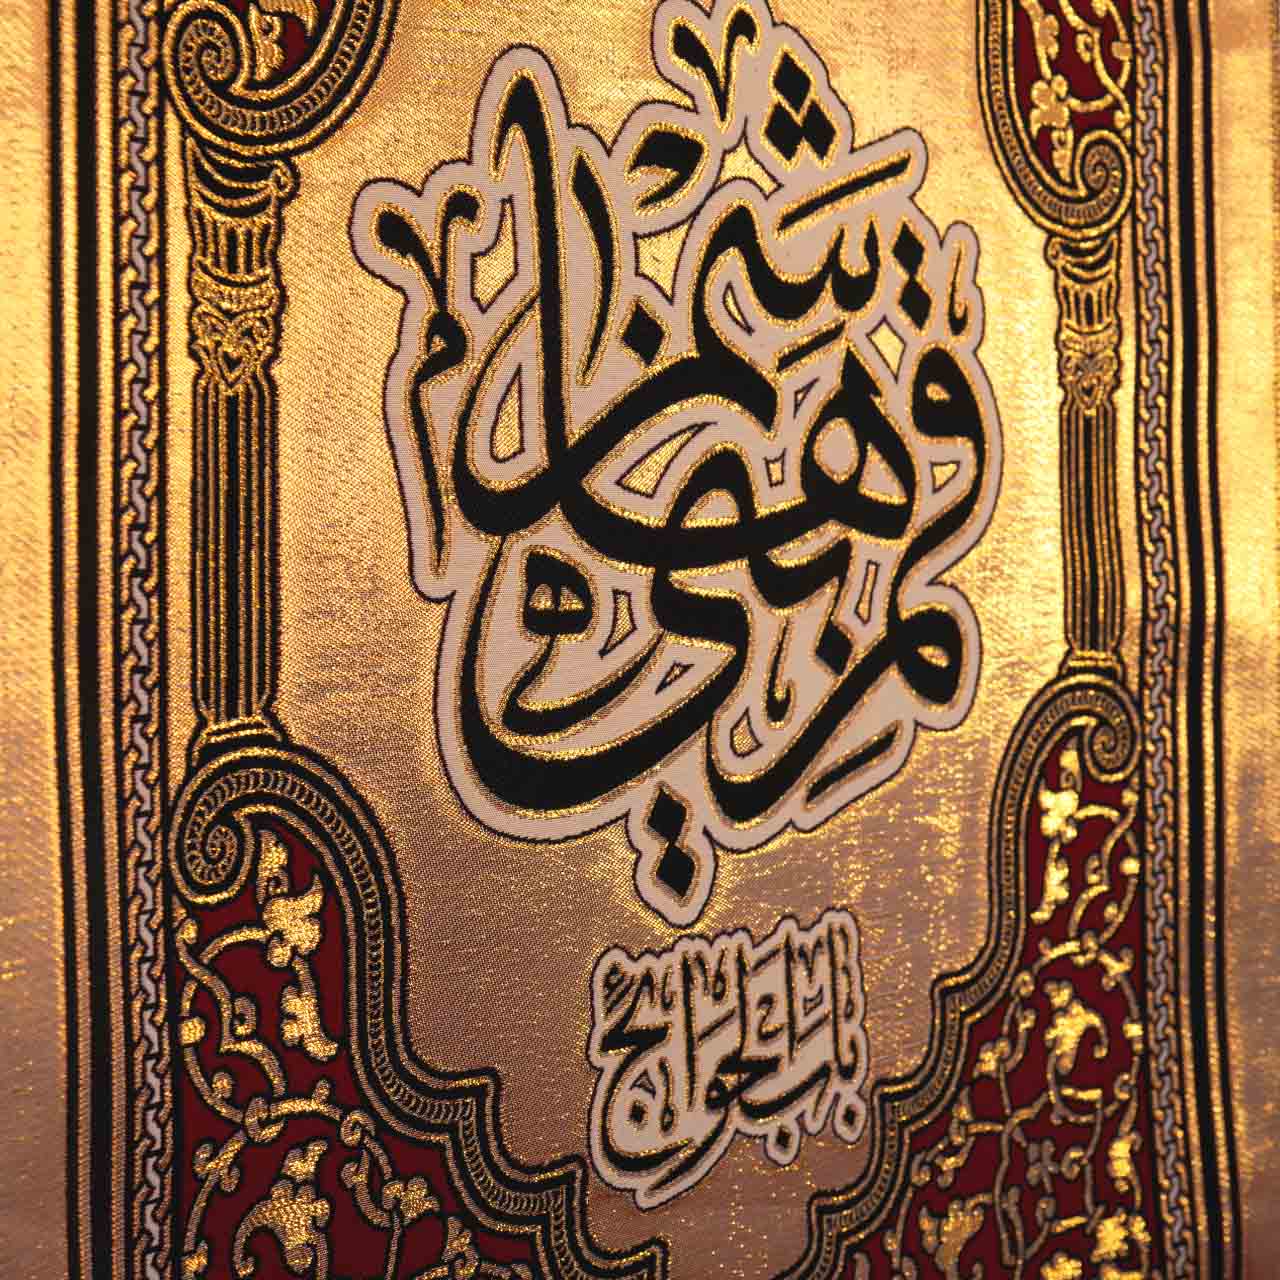 قمر بني هاشم
باب الحوائج